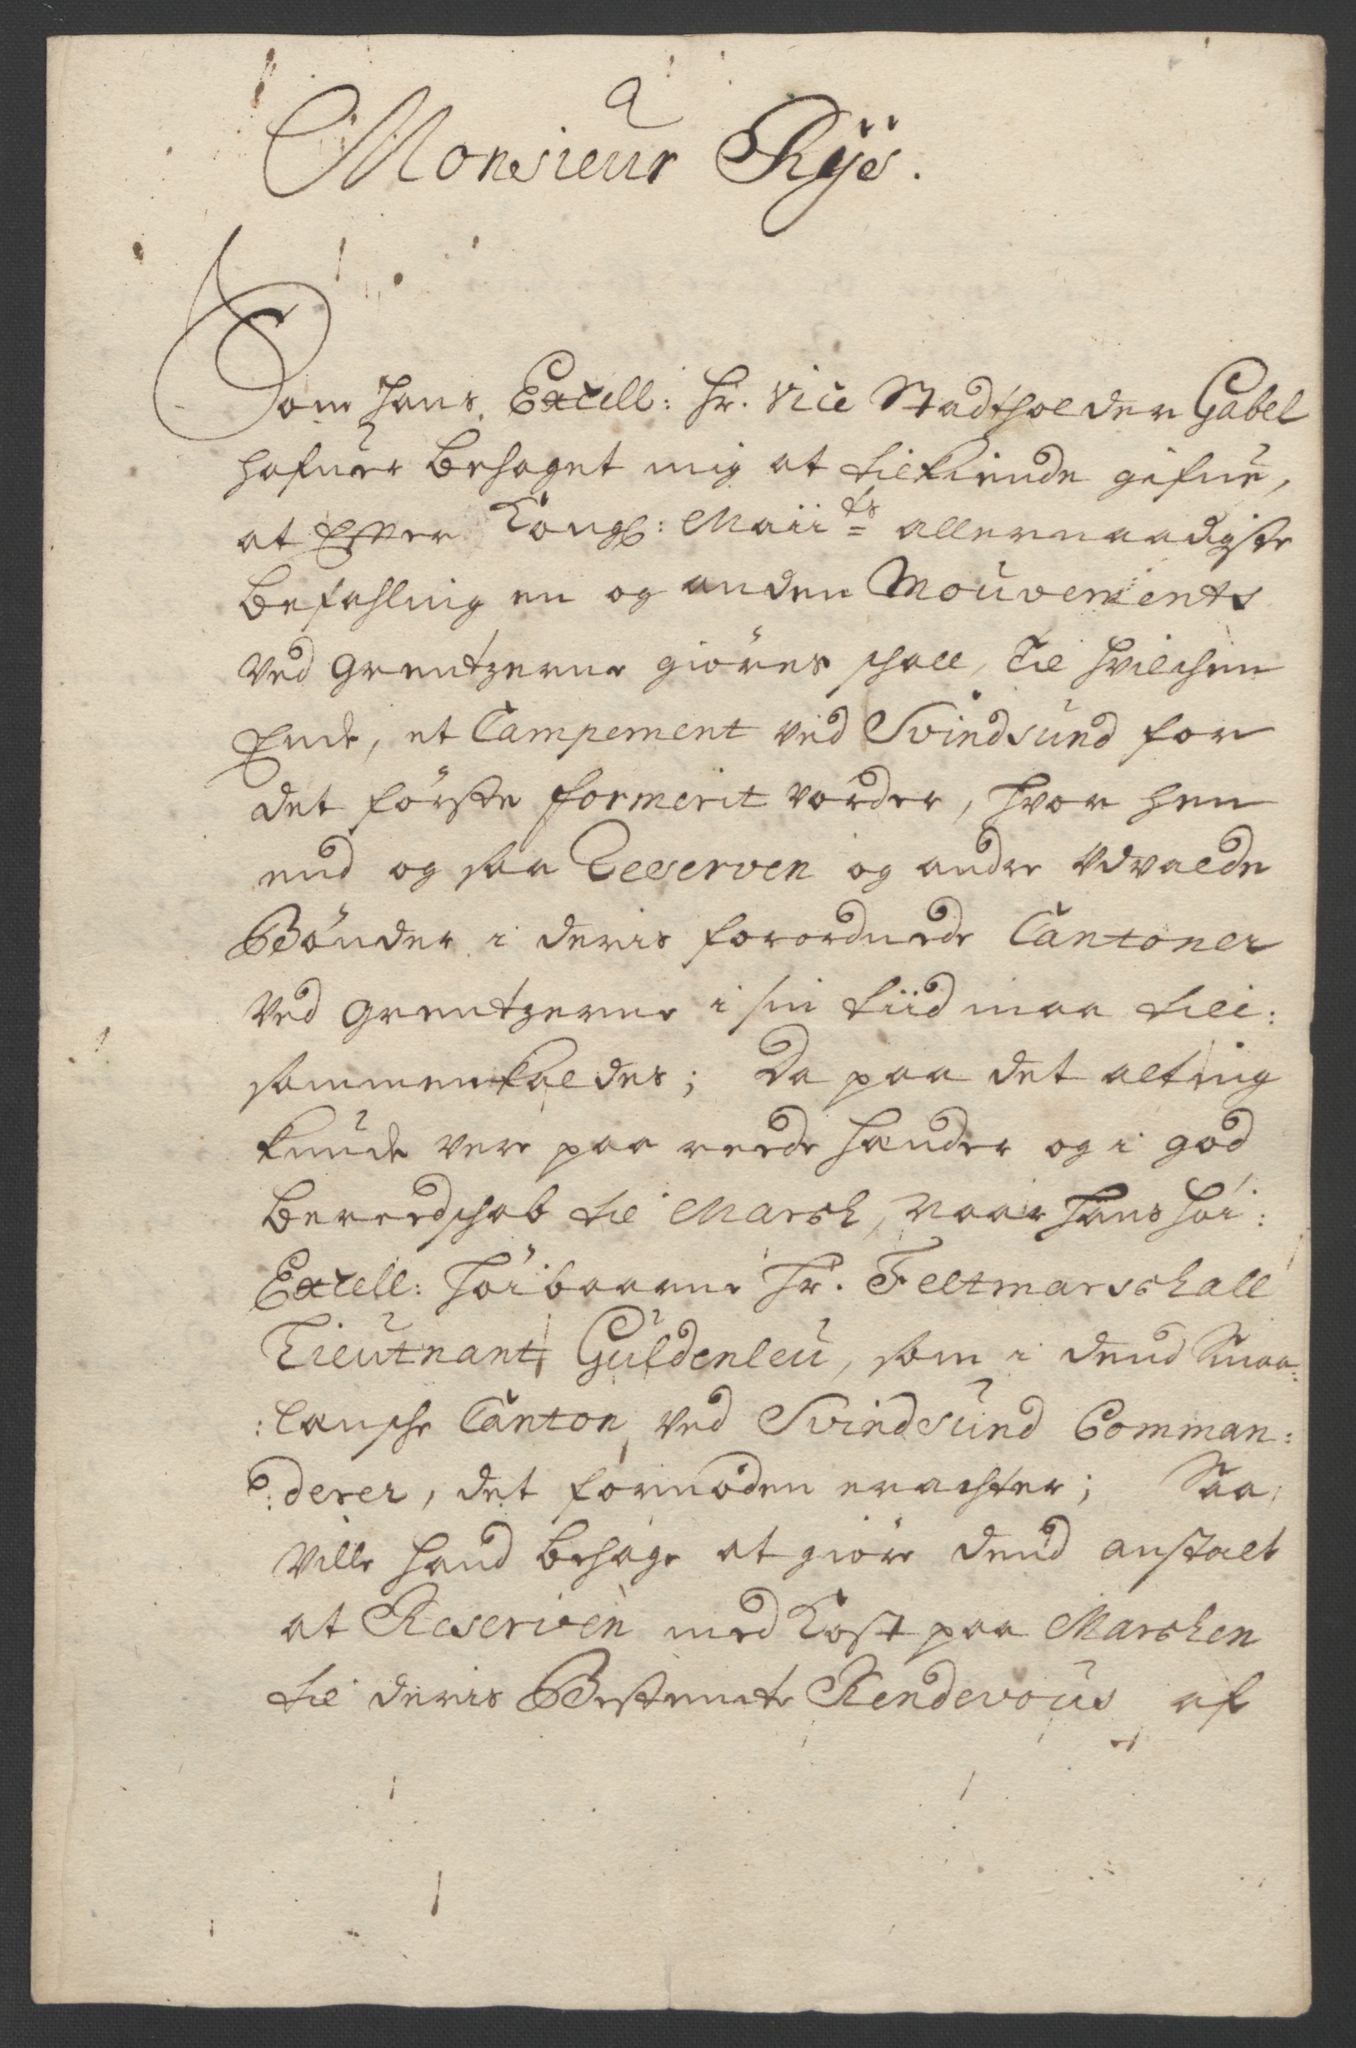 Monsieur Rÿes.
Som Hans Excell: Hr. Vice Stadtholder Gabel
hafuer behaget mig at tilkiende gifue,
at Efter Kongl: Maii^ts allernaadigste
befahling en og anden Mouvements
ved Grentzerne giöres schall, til hvilchen
Ende, et Campement ved Svindsund for
det förste formerit vorder, hvor hen
end og saa Reserven og andre Udvalde
Bönder i deris forordnede Cantoner
ved Grentzerne i sin tiid maa till:
sammenkaldes; Da paa det alting
kunde vere paa reede hænder og i god
bereedschab til March, naar Hans Höi:
Excell: Höibaarne Hr. Feltmarschall
Lieutnant Güldenleu, som i dend Smaa:
:lensche Canton ved Svindsund Comman:
:derer, det fornöden eragter; Saa
ville hand behage at giöre dend anstalt
at Reserven med Kost paa Marchen
til deris Bestemte Rendevous af